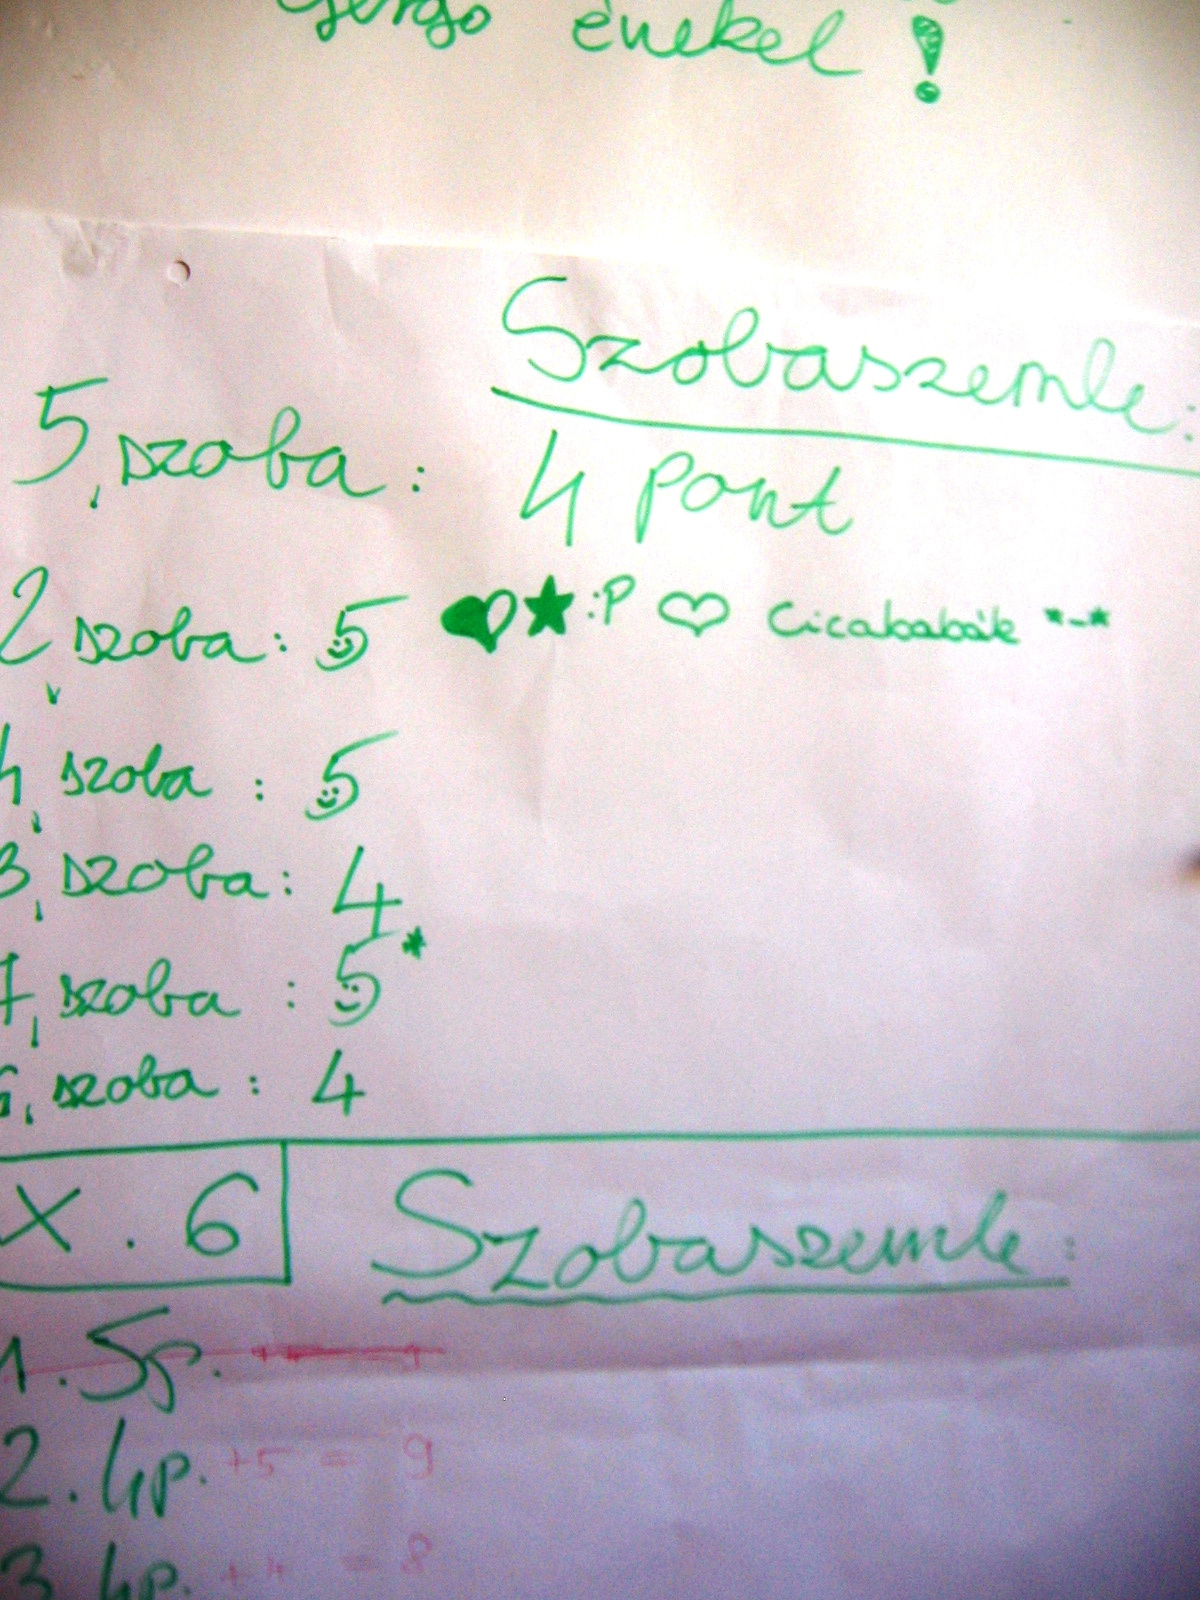 Gergő énekel!
Szobaszemle:
5, szoba: 4 pont
2, szoba: 5 :P Cicababák *-*
4, szoba : 5
3, szoba: 4
7, szoba : 5*
6, szoba : 4
X. 6 Szobaszemle:
1. 5p.
2. 4p. +5 = 9
3. 4p. +4 = 8